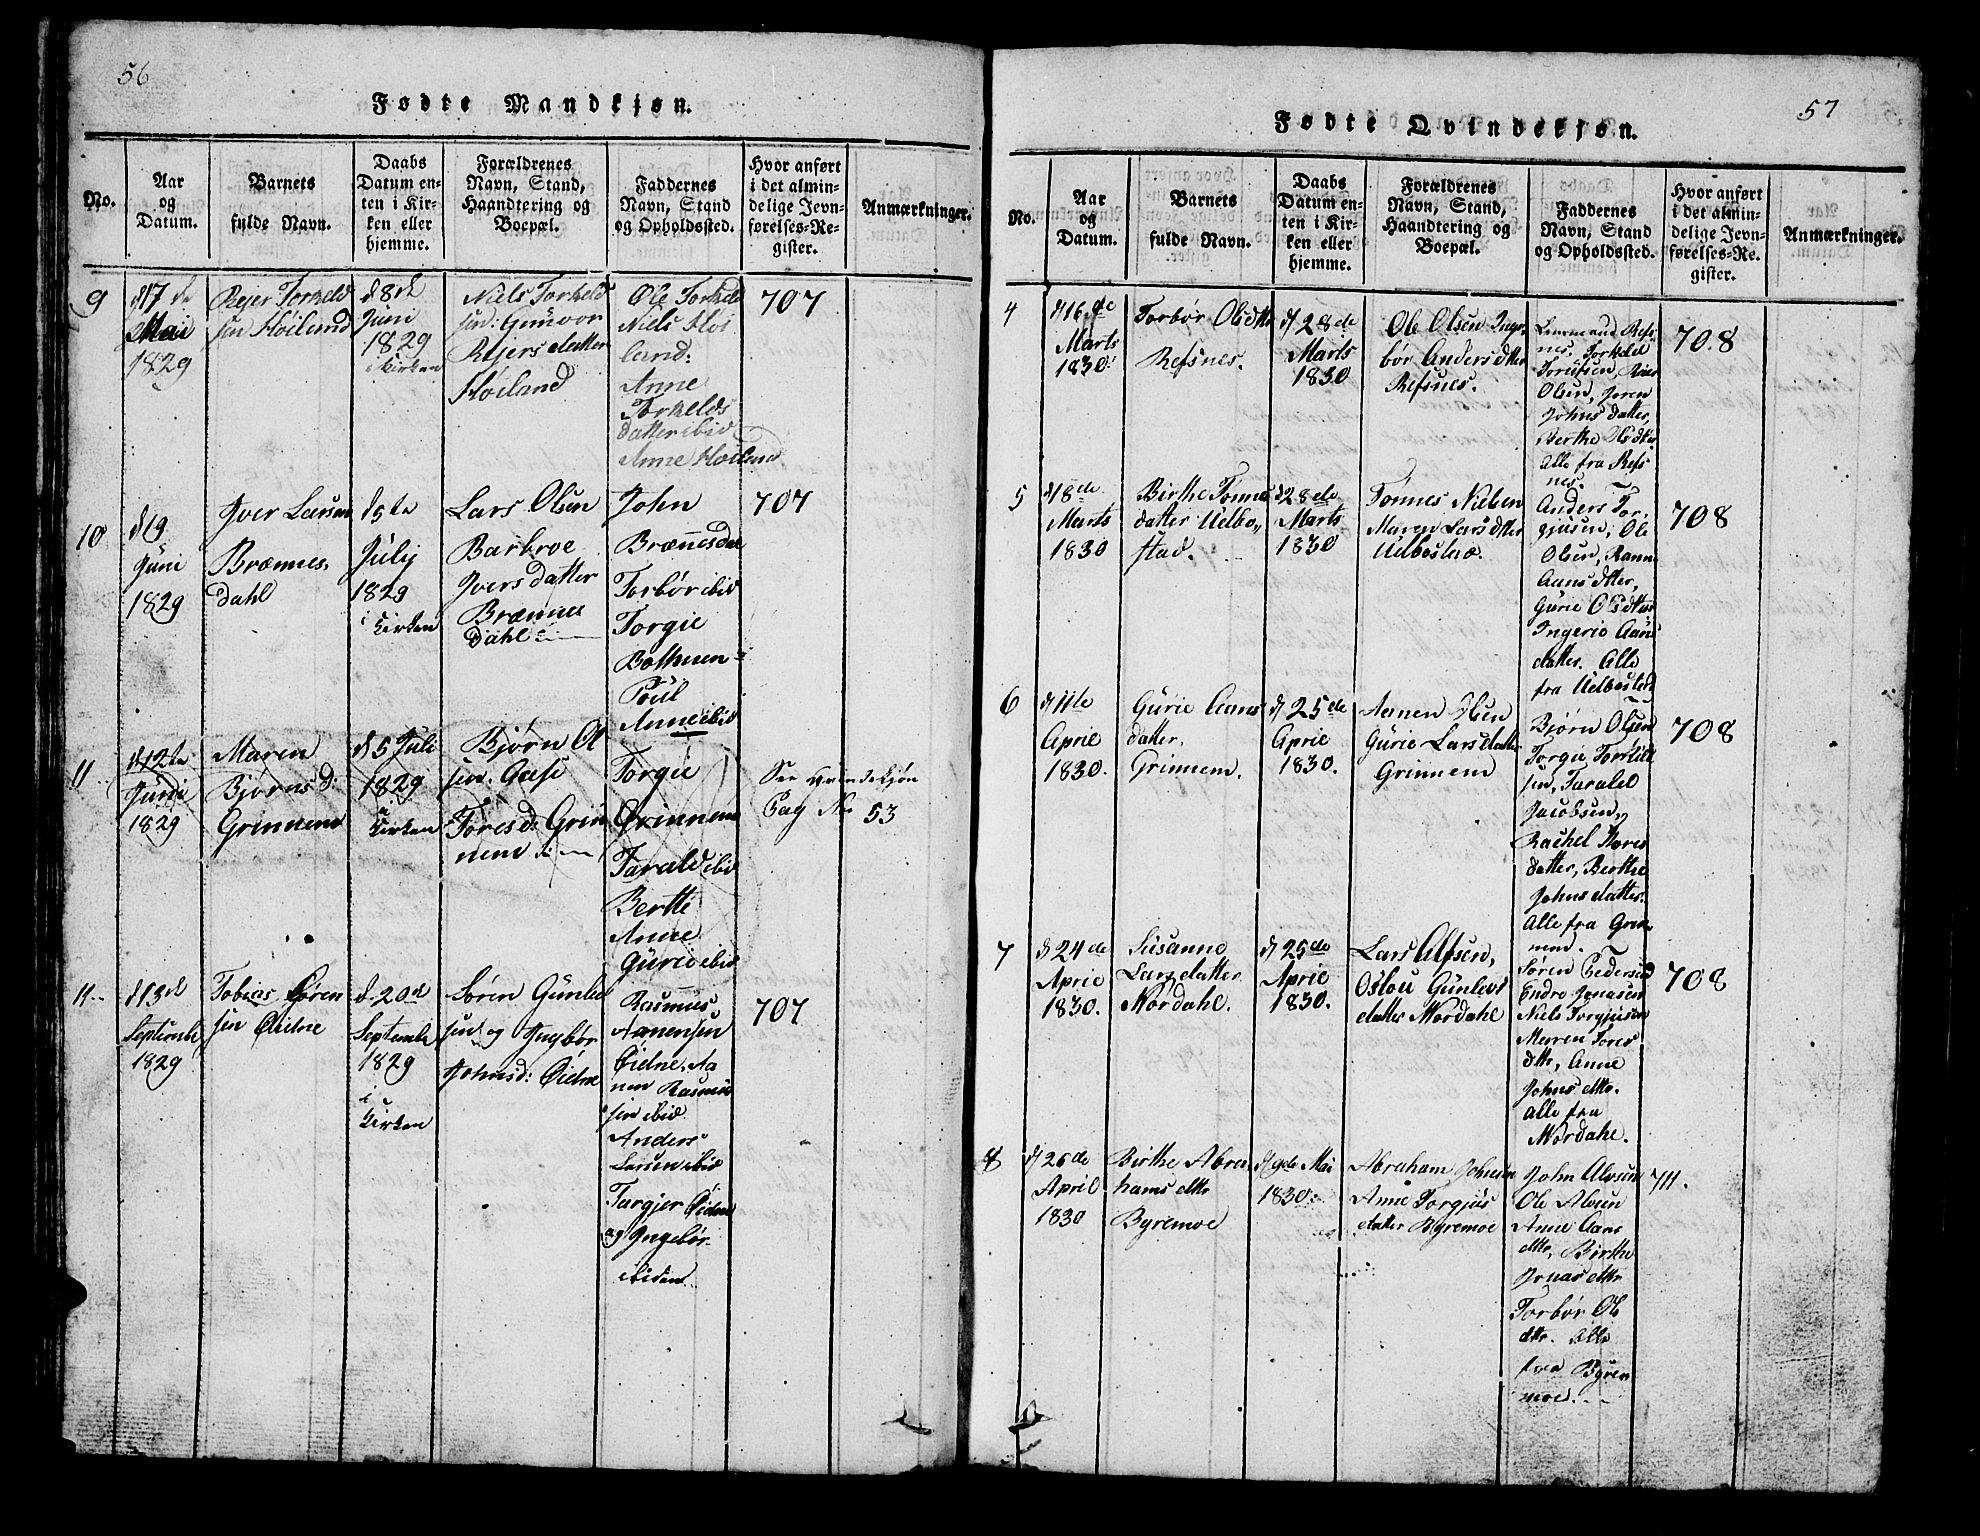 56
Fødte Mandkjøn.
No.
Aar
og
Datum.
Barnets
fulde Navn.
Daabs
Datum en-
ten i Kir-
ken eller
hjemme.
Forældrenes
Navn, Stand,
Haandtering og
Boepæl.
Faddernes
Navn, Stand
og Opholdssted.
Hvor anført
i det almin-
delige Jevn-
førelses-Re-
gister.
Anmærkninger.
9
d 17 de
Mai
1829
Rejer Torkeld
sen Høiland
d 8 de
Juni
1829
i kirken
Niels Torkeld
sen: Gunvor
Rejers datter
Høiland
Ole Torkeld
Niels Høi
land:
Anne
Torkelds
datter ibid
Anne Høiland
707
10
d 19
Juni
1829
Iver Larsen
Brænnes
dahl
d 5 te
July
1829
i Kirken
Lars Olsen
Barbroe
Ivers datter
Brænnes
dahl
John
Brænnesdal
Torbør ibid
Torgie
Bothnen
Poul
Anne ibid
707
11
d 12 te
Juni
1829
Maren
Bjørns d:
Grinnem
d 5 Juli
1829
i
Kirken
Bjørn Ol
sen. Gusi
Tores d: Grin
nem
Torgie
Grinnem
Tarald ibid
Berthe
Anne
Gurie ibid
See Qvindekjøn
Pag No 53
11
d 13 d
Septembe
1829
Tobias Søren
sen Øidne
d. 20 d
Septembe
1829
i
Kirken
Søren Gunled
sen og Ingbør
Johnsd: Øidne
Rasmus
Aanensen
Øidne, Aa
nen Rasmus
sen ibid
Anders
Larsen ibid
Targjer Øidne
og Ingebør
ibidem
707
57
Fødte Qvindekjøn.
No.
Aar
og
Datum.
Barnets
fulde Navn.
Daabs
Datum en-
ten i Kir-
ken eller
hjemme.
Forældrenes
Navn, Stand,
Haandtering og
Boepæl.
Faddernes
Navn, Stand
og Opholdssted.
Hvor anført
i det almin-
delige Jevn-
førelses-Re-
gister.
Anmærkninger.
4
d 16 de
Marts
1830
Torbør Olsdttr
Refsnes.
d 28 de
Marts
1830
Ole Olsen Inge
bør Anders dtter
Refsnes.
Refs
nes, Torkeld
Olsen, Joren
Johns datter,
Berthe Olsdtter
Alle fra Refs
nes.
708
5
d 18 de
Marts
1830
Birthe Tønnes
datter Uelbo„
stad.
d 28 de
Marts
1830
Tønnes Nielsen
Maren Lars dtter
Uelbostad.
Anders Tor
gjusen, Ole
Olsen, Ranne
Aans dtter,
Gurie Olsdtter
Ingerie Aans
datter. Alle
fra Uelbostad
708
6
d 11 te
April
1830.
Gurie Aans
datter.
Grinnem.
d 25 de
April
1830.
Aanen Olsen
Gurie Lars datter
Grinnem
Bjørn Olsen
Torgie Torkild
sen, Tarald
Jacobsen,
Rachel Tores
datter, Berthe
Johns datter.
Alle fra Grin
nem.
708
7
d 24 de
April
1830.
Susanne
Lars datter
Mordahl.
d 25 de
April
1830.
Lars Alfsen,
Oslou Gunlevs
datter Mordahl
Søren Pedersen
Endre Jonasen
Niels Torgjusen
Merren Tores
dttr, Anne
Johns dttr.
Alle fra
Mordahl.
708
8
d 26 de
April
1830
Birthe Abra
hams dttr
Byremoe
d 9de Mai
1830
Abraham Johnsen
Anne Torgjus
datter Byremoe
John Alvsen
Ole Alvsen
Anne Aans
dttr, Birthe
Jonas dttr
Torbør Ols
dttr. Alle
fra Byre
moe.
711.